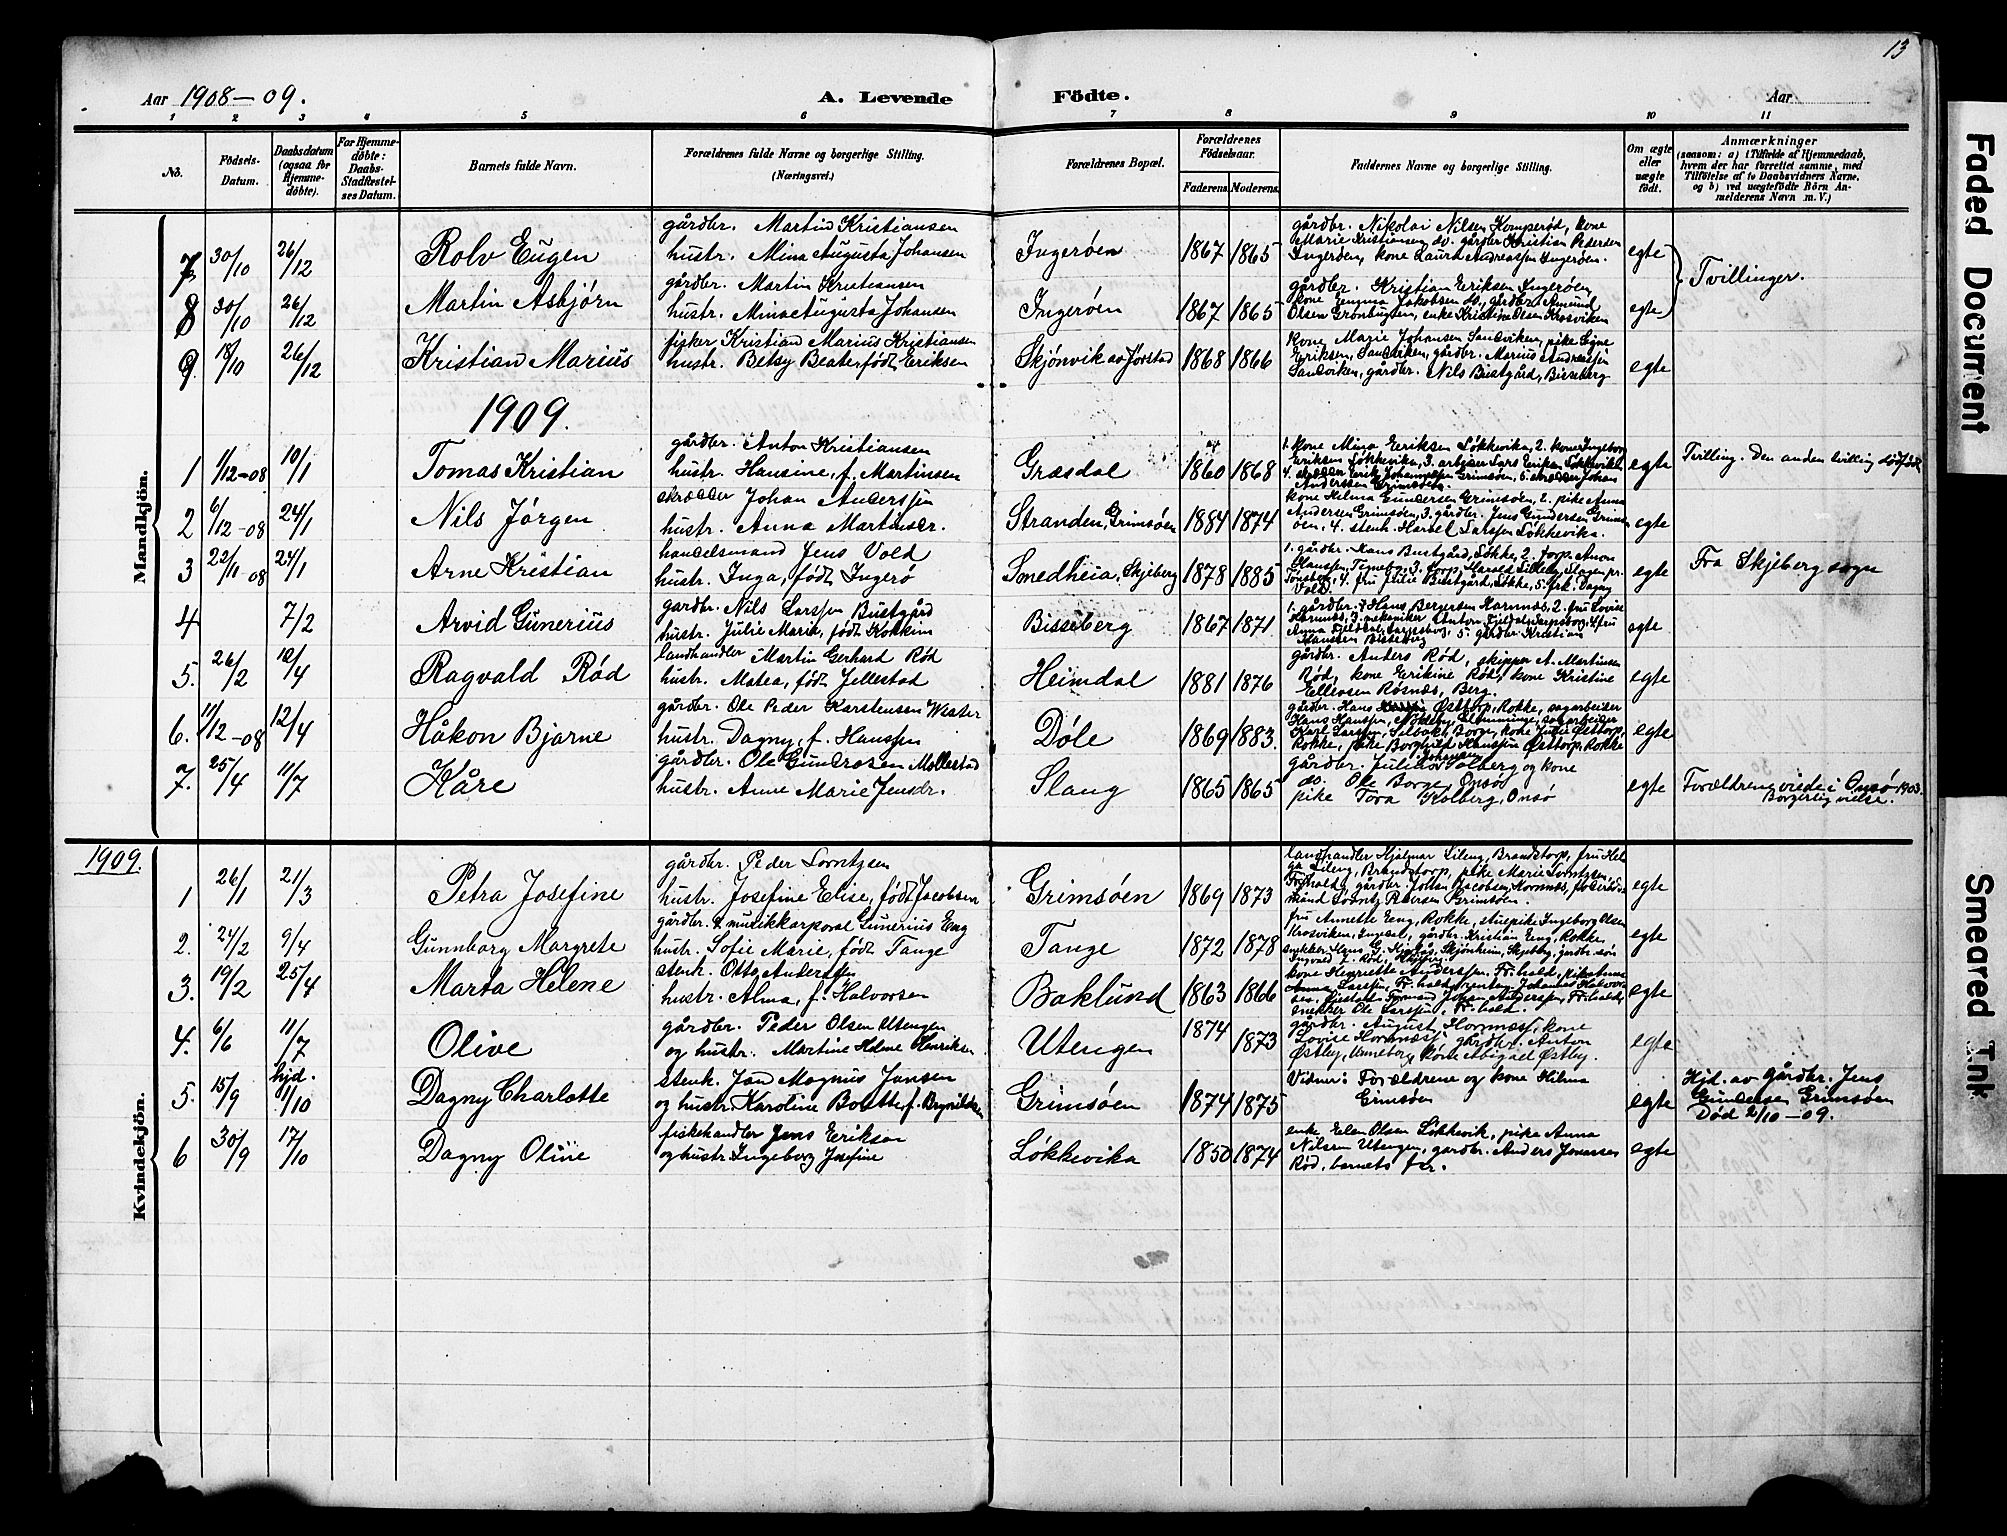 13
Aar 1908-09.
A. Levende Födte.
Aar
1 2 3 4 5 6 7 8 9 10 11
No.
Födsels-Datum.
Daabsdatum (ogsaa for Hjemmedöbte).
For Hjemmedöbte: Daabs-Stadfæstelses Datum.
Barnets fulde Navn.
Forældrenes fulde Navne og borgerlige Stilling.
(Næringsvei.)
Forældrenes Bopæl.
Forældrenes Födselsaar.
Faderens. Moderens.
Faddernes Navne og borgerlige Stilling.
Om ægte eller uægte födt.
Anmærkninger
(saasom: a) i Tilfælde af Hjemmedaab, hvem der har forrettet samme, med Tilföielse af to Daabsvidners Navne, og b) ved uægtefödte Börn Anmelderens Navn m. V.)
Mandkjön.
7 30/10 26/12 Rolv Eugen
gårdbr. Martin Kristiansen
hustr. Mina Augusta Johansen
Ingerøen 1867 1865
gårdbr. Nikolai Nilsen Kornperød, kone
Marie Kristiansen do. gårdbr Kristian Pedersen
Ingerøen, kone Laura Andreassen Ingerøen.
egte
Tvillinger.
8 30/10 26/12 Martin Asbjørn
gårdbr. Martin Kristiansen
hustr. Mina Augusta Johansen
Ingerøen 1867 1865
gårdbr. Kristian Eriksen Ingerøen
kone Jakobsen do., gårdbr. Amund
Olsen Grønbugten, enke Kristine Olsen Krosviken
egte
9 18/10 26/12 Kristian Marius
fisker Kristian Marius Kristiansen
hustr. Betsy Beate født Eriksen
Skjønvik av Jorstad 1868 1866
kone Marie Johansen Sandviken, pike Signe
Eriksen, Sandviken, gårdbr. Marius Andreassen
Sandviken, gårdbr. Nils Bustgård, Bisseberg
egte
1909.
1 1/12-08 10/1 Tomas Kristian
gårdbr. Anton Kristiansen
hustr. Hansine, f. Martinsen
Græsdal 1860 1868
1. kone Mina Eriksen Løkkevika, 2. kone Ingeborg
Eriksen Løkkevika, 3. arbeider Lars Eriksen Løkkevika
4. skrædder Johannessen Grimsøen, 5. skrædder Johan
Anderssen Grimsøen
egte Tvilling. Den anden tvilling dødfødt
2 6/12-08 24/1 Nils Jørgen
skrædder Johan Anderssen
hustr. Anna Martinsdr.
Stranden, Grimsøen 1884 1874
kone Helma Gundersen Grimsøen, 2. pike Anna
Andersen Grimsøen, 3. gårdbr. Jens Gundersen Grimsøen, 4. stenh. Larssen Løkkevika.
egte
3 22/11-08 24/1 Arne Kristian
handelsmand Jens Vold
hustr. Inga, født Ingerø
Smedheia, Skjeberg 1878 1885
1. gårdbr. Hans Bustgård, Løkke, 2. forp. Anton
Hanssen, 3. forp. Harald Slagen pr.
Tønsberg, 4. fru Julie Bustgård, Løkke, 5. frk. Dagny
Vold.
egte Fra Skjeberg sogn
4 7/2 Arvid Gunerius
gardbr. Nils Larssen Bustgård
hustr. Julie Marie, født Kokkim
Bisseberg 1867 1871
1. gårdbr. Hans Bergersen Hornnæs, 2. fru Lovise
Hornnæs, 3. mekaniker Anton Fjeldal, Sarpsborg, 4 fru
Anna Fjeldal, Sarpsborg, 5. gårdbr. Kristian
Hanssen Bisseberg
egte
5. 26/2 12/4 Ragvald Rød
landhandler Martin Gerhard Rød
hustr. Matea, født Jellestad
Heimdal 1881 1876
gårdbr. Anders Rød, skipper A. Martinsen
Rød, kone Erikine Rød, kone Kristine
Ellevsen Røsnæs, Berg.
egte
6. 11/12-08 12/4 Håkon Bjarne
gårdbr. Ole Peder Karstensen Wester
hustr. Dagny, f. Hanssen
Døle 1869 1883.
gårdbr. Hans Østtorp, Rokke, sagarbeider
Hans Hanssen, Klemminge, sagarbeider
Karl Larssen, Selbakk, Borge, kone Julie Østtorp,
Rokke, pike Borghild Hanssen Østtorp, Rokke
egte
7. 25/4 11/7 Kåre
gårdbr. Ole Gundersen Møllestad
hustr. Anne Marie Jensdr.
Slang 1865 1865
gårdbr. Julius Johansen Solberg og kone
do. Ole Borge, Onsø
pike Tora Kolberg, Onsø
egte Forældrene viede i Onsø 1903.
Borgerlig vielse.
Kvindekjön.
1909.
1 26/1 21/3 Petra Josefine
gårdbr. Peder Lorntzen
hustr. Josefine Elise, født Jacobsen
Grimsøen 1869 1873
landhandler Hjalmar Lileng, Brandstorp, fru Helga Lileng, Brandstorp, pike Marie Lorntzen,
Fr.hald, gårdbr. Johan Jacobsen, Hornnæs, føderåds
mand Lorntz Petersen Grimsøen.
egte
2. 24/2 9/4 Gunnborg Margrete
gårdbr. & musikkorporal Gunerius Eng
hustr. Sofie Marie, født Tange
Tange 1872 1878
fru Annette Eng, Rokke, stuepike Ingeborg Olsen
Krosviken, Ingedal, gårdbr. Kristian Eng, Rokke,
snekker Hans G. Skjønheim, Skjeberg, gårdbr. søn
Ingvald Rød,
egte
3. 19/2 25/4 Marta Helene
stenh. Otto Anderssen
hustr. Alma, f. Halvorsen
Baklund 1863 1866
kone Henriette Anderssen, Fr.hald, pike Anna
Larssen, Fr.hald, Johannes Halvorsen, Formand Johan Anderssen, Fr.hald,
snekker Ole Larssen, Fr.hald.
egte
4. 6/6 11/7 Olive
gårdbr. Peder Olsen Utengen
og hustr. Martine Helene Henriksen
Utengen 1874 1873
gårdbr. August Hornnæs, kone
Lovise Hornnæs, gårdbr. Anton
Østby, Unneberg, kone Abigael Østby.
egte
5. 15/9 hjd. 1/10 Dagny Charlotte
stenh. Jan Magnus Jansen
og hustr. Karoline Bolette f. Brynildsen
Grimsøen 1874 1875
Vidner: Forældrene og kone Hilma
Grimsøen
egte Hjd. av gårdbr. Jens
Gundersen Grimsøen
Død 2/10-09.
6 30/9 17/10 Dagny Oline
fiskehandler Jens Eriksen
og hustr. Ingeborg Josefine
Løkkevika 1850 1874
enke Elen Olsen Løkkevik, pike Anna
Nilsen Utengen, gårdbr. Anders Jonassen
Rød, barnets far.
egte
Faded Document
Smeared Ink